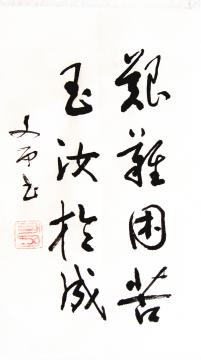 艱難困苦
玉汝於成
文命书